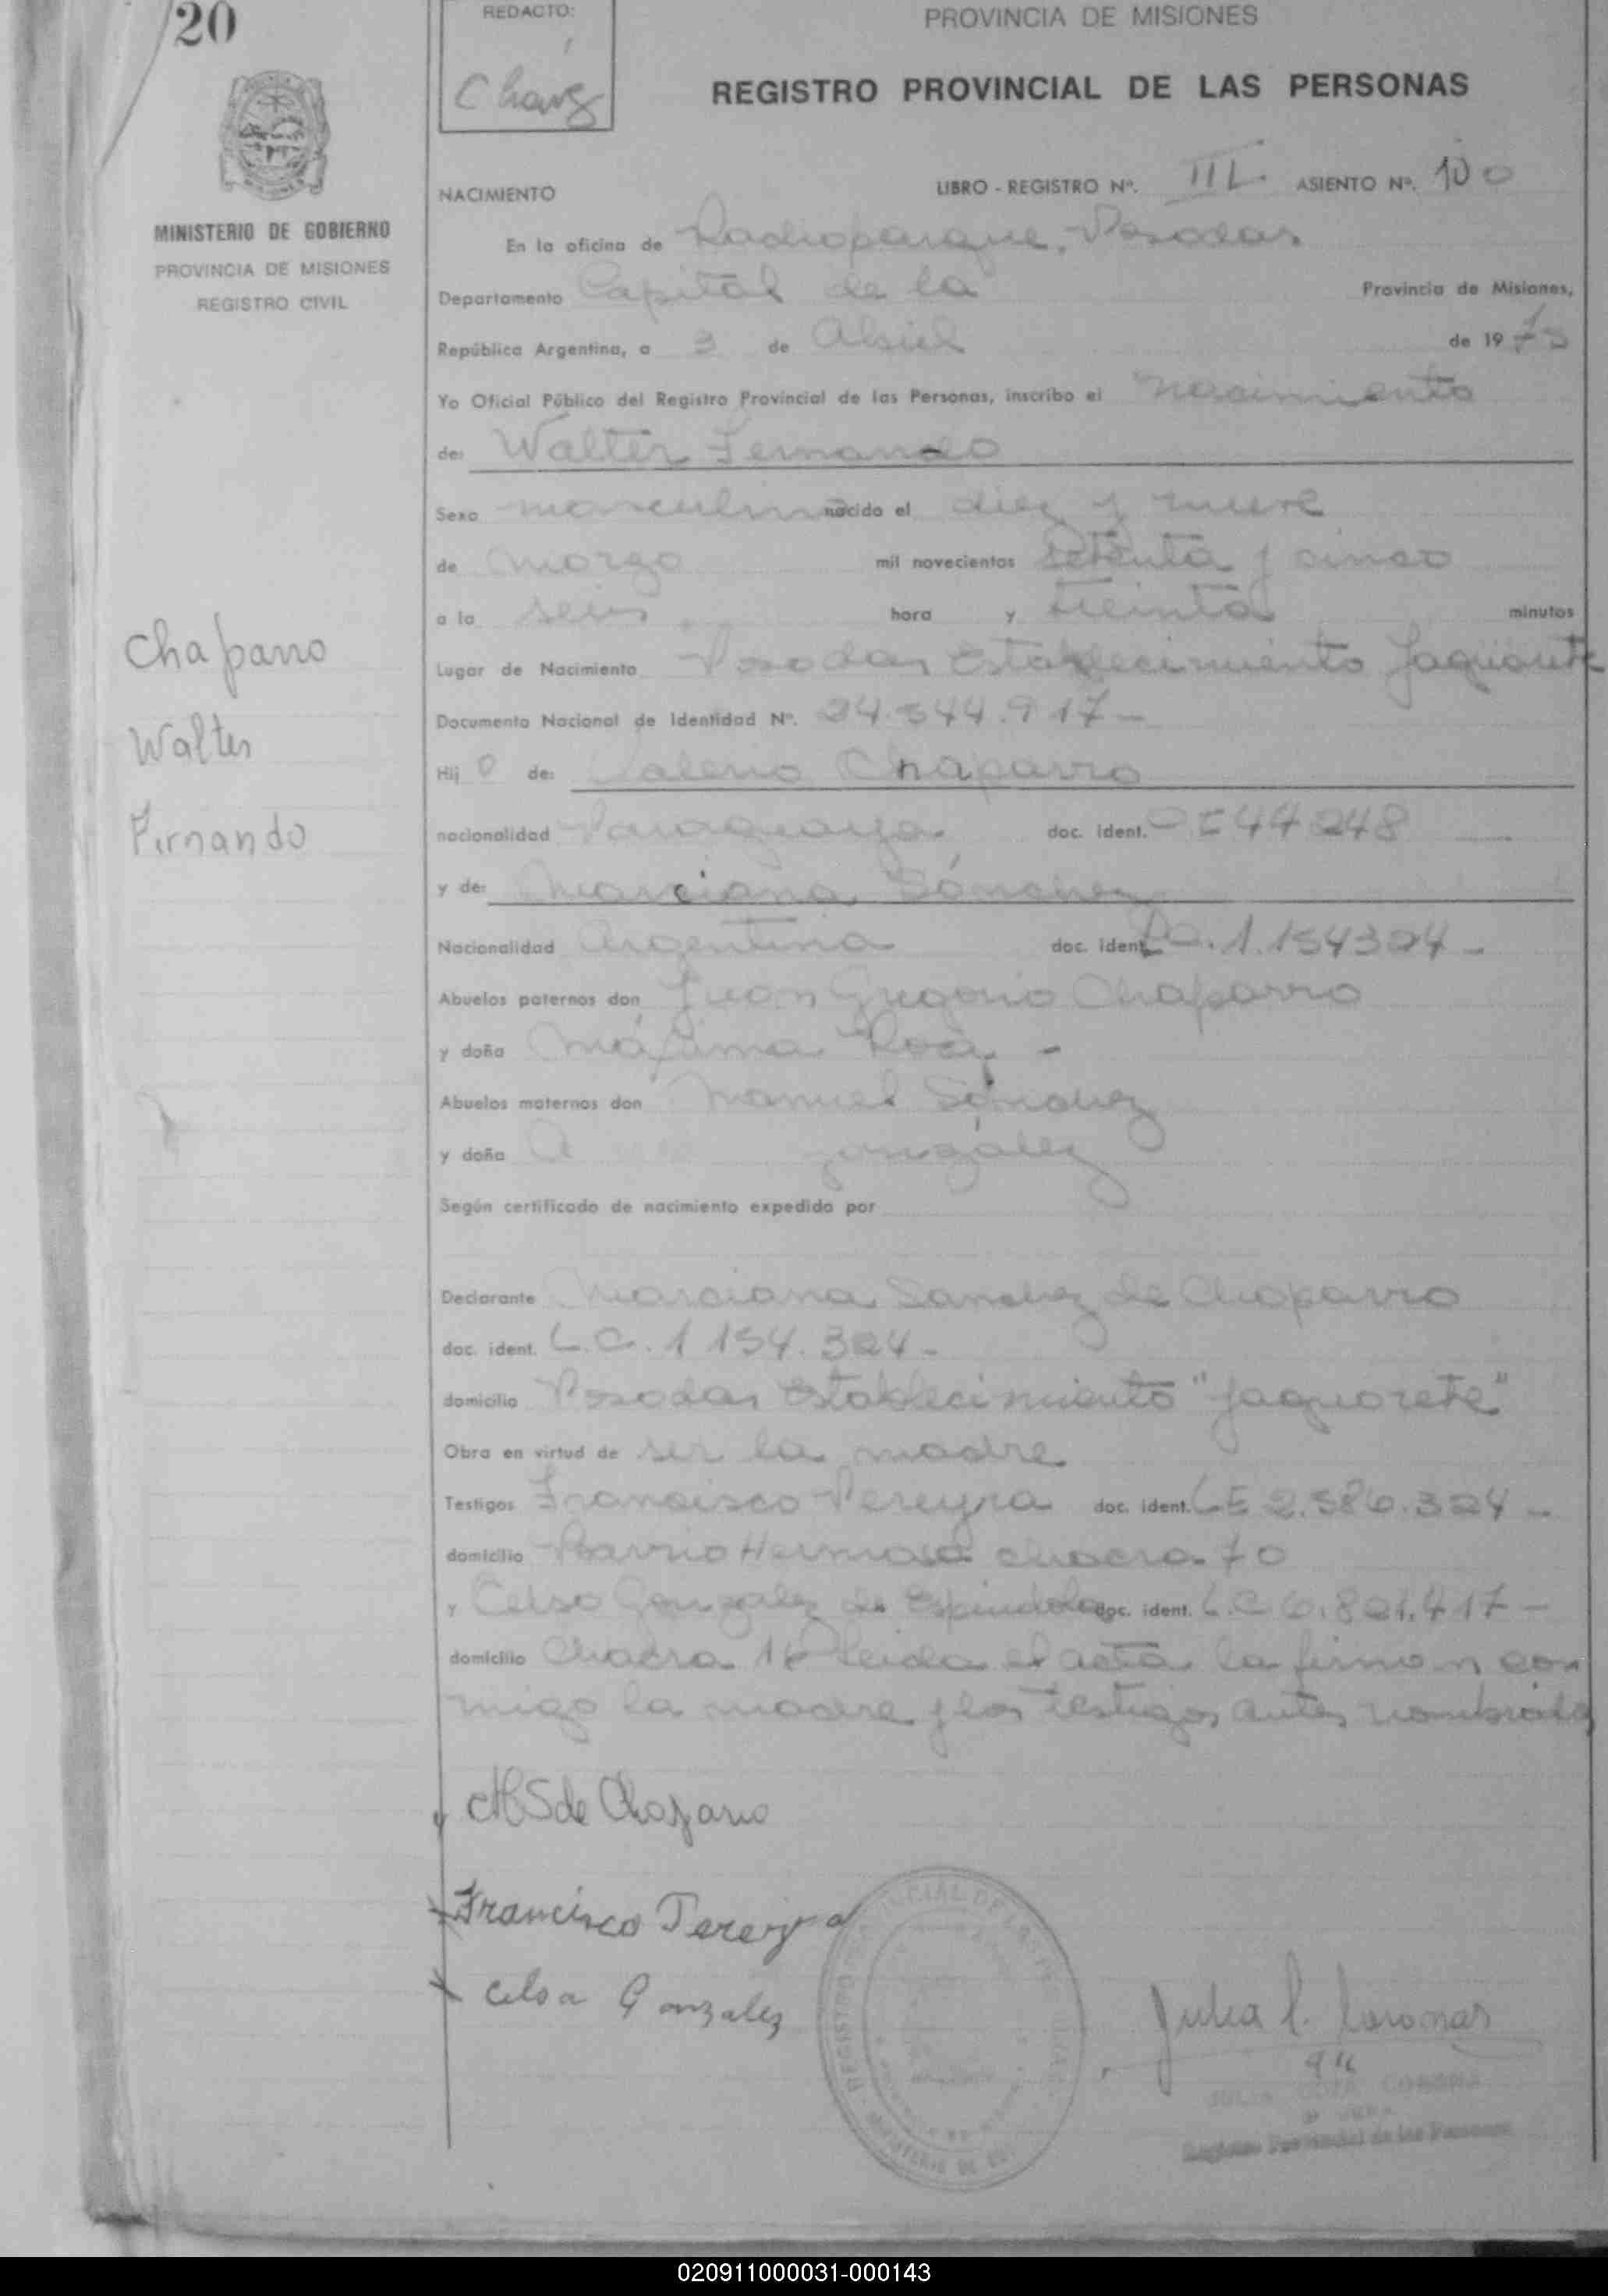 20
REDACTO:
Chavez
PROVINCIA DE MISIONES
REGISTRO PROVINCIAL DE LAS PERSONAS
MINISTERIO DE GOBIERNO
PROVINCIA DE MISIONES
REGISTRO CIVIL
NACIMIENTO
LIBRO - REGISTRO Nº. III ASIENTO Nº. 100
En la oficina de Radioparque, Posadas
Departamento Capital de la Provincia de Misiones,
República Argentina, a 3 de Abril de 1975
Yo Oficial Público del Registro Provincial de las Personas, inscribo el nacimiento
de: Walter Fernando
Sexo masculino nacido el diez y nueve
de marzo mil novecientos setenta y cinco
a la seis hora y treinta minutos
Chaparro
Walter
Fernando
Lugar de Nacimiento Posadas Establecimiento
Documento Nacional de Identidad Nº. 24.344.917-
Hij o de: Chaparro
nacionalidad Paraguaya doc. ident. 44248
y de: Marciana Sánchez
Nacionalidad Argentina doc. ident. 1.154324-
Abuelos paternos don Juan Gregorio Chaparro
y doña Máxima -
Abuelos maternos don Manuel Sánchez
y doña González
Según certificado de nacimiento expedido por
Declarante Marciana Sanchez de Chaparro
doc. ident. L.C. 1 154.324-
domicilio Posadas Establecimiento "Jaguarete"
Obra en virtud de ser la madre
Testigos Francisco Pereyra doc. ident. LE 2.586.324-
domicilio Barrio Hermoso chacra 70
y Celsa Gonzalez de Espindola doc. ident. L.C 6.821.417-
domicilio Chacra leida el acta la firman con
migo la madre y los testigos antes nombrados
M S de Chaparro
Francisco Pereyra
Celsa Gonzalez
Registro Provincial de las Personas
020911000031-000143